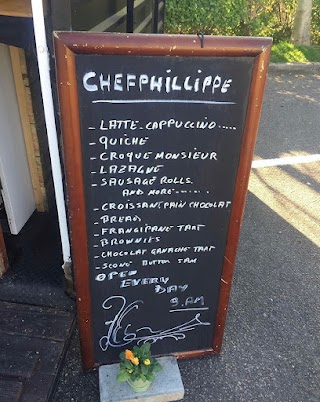 CHEFPHILLIPPE
- LATTE - CAPPUCCINO.....
- QUICHE
- CROQUE MONSIEUR
- LAZAGNE
- SAUSAGE ROLLS
AND MORE-......
- CROISSANT PAIN CHOCOLAT
- BREAD
- FRANGIPANE TART
- BROWNIES
- CHOCOLAT GANACHE TART
- SCONE BUTTON JAM
OPEN
EVERY
DAY
9.AM